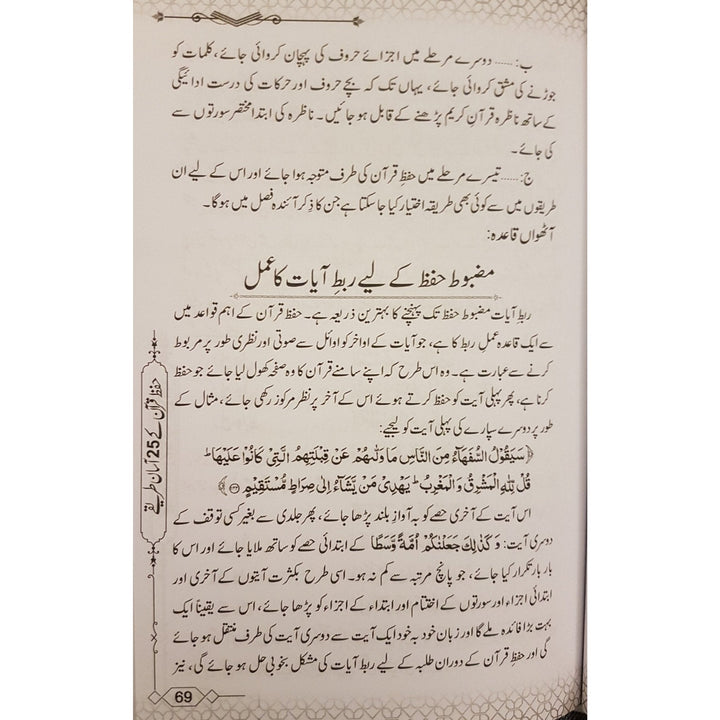 ب: ...... دوسرے مرحلے میں اجزائے حروف کی پہچان کروائی جائے، کلمات کو
جوڑنے کی مشق کروائی جائے، یہاں تک کہ بچے حروف اور حرکات کی درست ادائیگی
کے ساتھ ناظرہ قرآنِ کریم پڑھنے کے قابل ہو جائیں۔ ناظرہ کی ابتدا مختصر سورتوں سے
کی جائے۔
ج: ...... تیسرے مرحلے میں حفظِ قرآن کی طرف متوجہ ہوا جائے اور اس کے لیے ان
طریقوں میں سے کوئی بھی طریقہ اختیار کیا جا سکتا ہے جن کا ذکر آئندہ فصل میں ہوگا۔
آٹھواں قاعدہ:
مضبوط حفظ کے لیے ربطِ آیات کا عمل
ربطِ آیات مضبوط حفظ تک پہنچنے کا بہترین ذریعہ ہے۔ حفظ قرآن کے اہم قواعد میں
سے ایک قاعدہ عملِ ربط کا ہے، جو آیات کے اواخر کو اوائل سے صوتی اور نظری طور پر مربوط
کرنے سے عبارت ہے۔ وہ اس طرح کہ اپنے سامنے قرآن کا وہ صفحہ کھول لیا جائے جو حفظ
کرنا ہے، پھر پہلی آیت کو حفظ کرتے ہوئے اس کے آخر پر نظر مرکوز رکھی جائے، مثال کے
طور پر دوسرے سپارے کی پہلی آیت کو لیجیے:
﴿سَيَقُوْلُ السُّفَهَآءُ مِنَ النَّاسِ مَا وَلّٰىهُمْ عَنْ قِبْلَتِهِمُ الَّتِيْ كَانُوْا عَلَيْهَا ؕ
قُلْ لِّلّٰهِ الْمَشْرِقُ وَالْمَغْرِبُ ؕ يَهْدِيْ مَنْ يَّشَآءُ اِلٰى صِرَاطٍ مُّسْتَقِيْمٍ﴾
اس آیت کے آخری حصے کو بہ آوازِ بلند پڑھا جائے، پھر جلدی سے بغیر کسی توقف کے
دوسری آیت: وَكَذٰلِكَ جَعَلْنٰكُمْ اُمَّةً وَّسَطًا کے ابتدائی حصے کو ساتھ ملایا جائے اور اس کا
بار بار تکرار کیا جائے، جو پانچ مرتبہ سے کم نہ ہو۔ اسی طرح بکثرت آیتوں کے آخری اور
ابتدائی اجزاء اور سورتوں کے اختتام اور ابتداء کے اجزاء کو پڑھا جائے، اس سے یقیناً ایک
بہت بڑا فائدہ ملے گا اور زبان خود بہ خود ایک آیت سے دوسری آیت کی طرف منتقل ہو جائے
گی اور حفظِ قرآن کے دوران طلبہ کے لیے ربطِ آیات کی مشکل بخوبی حل ہو جائے گی، نیز
حفظِ قرآن کے 25 آسان طریقے
69